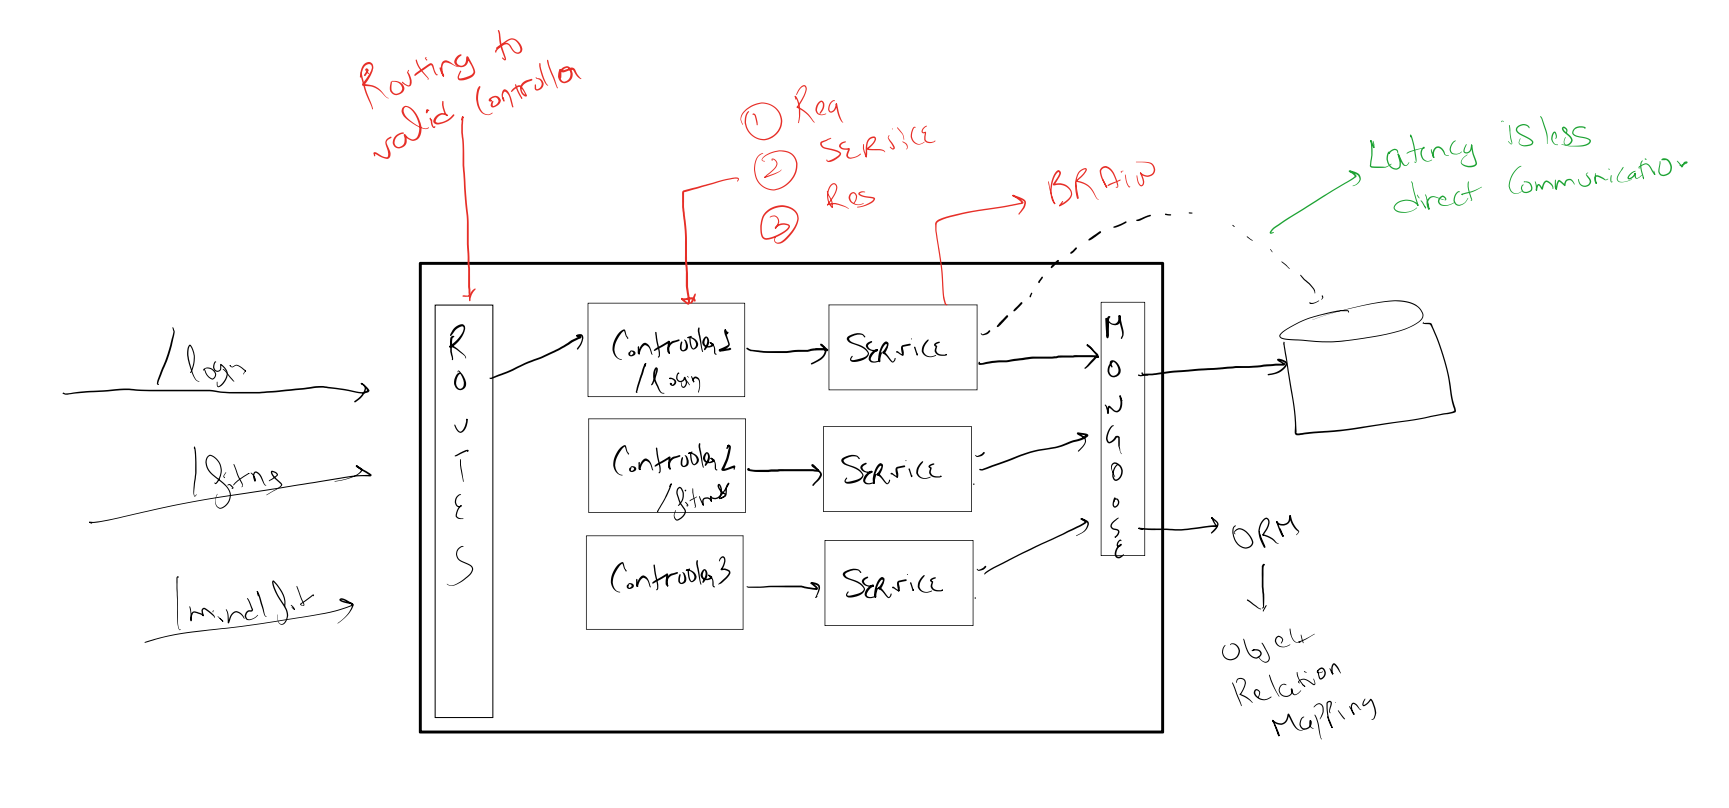 Routing to
valid Controller
① Req
② SERVICE
③ Res
BRAIN
Latency is less
direct Communication
/login
/fitns
/mindfit
ROUTES
Controller1
/login
Controller2
/fitns
Controller3
SERVICE
SERVICE
SERVICE
MONGOOSE
ORM
Object
Relation
Mapping